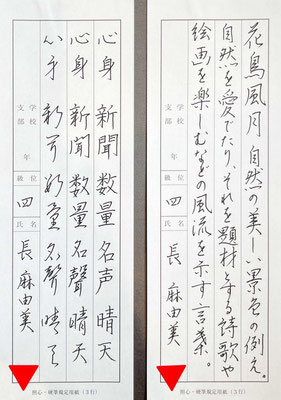 花鳥風月 自然の美しい景色の例え。
自然を愛でたり、それを題材とする詩歌や
絵画を楽しむなどの風流を示す言葉。
学校
支部
年
級位
四
氏名
長 麻由美
照心・硬筆規定用紙(3行)
心身 新聞 数量 名声 晴天
心身 新聞 数量 名聲 晴天
心身 新聞 数量 名聲 晴天
学校
支部
年
級位
四
氏名
長 麻由美
照心・硬筆規定用紙(3行)